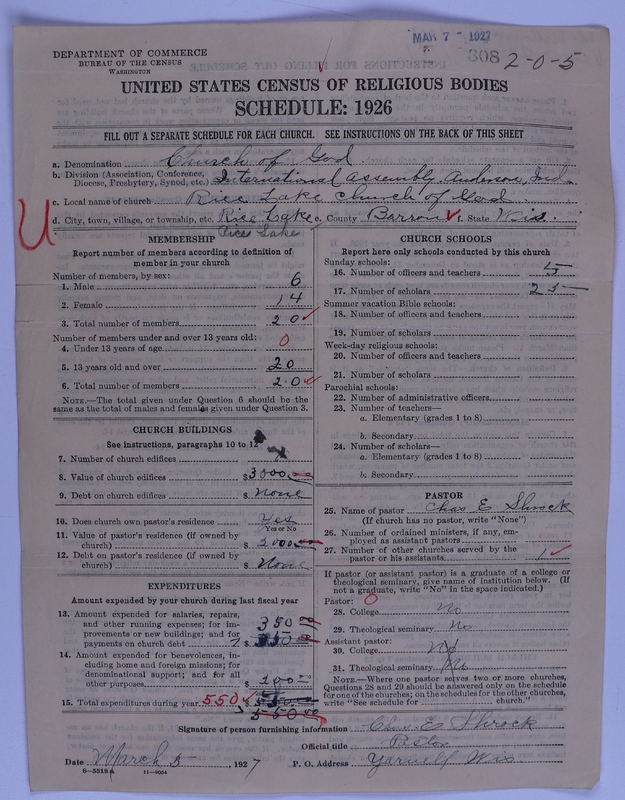 MAR 7 - 1927
808 2-0-5
DEPARTMENT OF COMMERCE
BUREAU OF THE CENSUS
WASHINGTON
UNITED STATES CENSUS OF RELIGIOUS BODIES
SCHEDULE: 1926
FILL OUT A SEPARATE SCHEDULE FOR EACH CHURCH. SEE INSTRUCTIONS ON THE BACK OF THIS SHEET
a. Denomination Church of God
b. Division (Association, Conference, Diocese, Presbytery, Synod, etc.) International Assembly. Anderson, Ind.
c. Local name of church Rice Lake Church of God.
d. City, town, village, or township, etc. Rice Lake e. County Barron f. State Wis.
Rice Lake
MEMBERSHIP
Report number of members according to definition of
member in your church
Number of members, by sex:
1. Male 6
2. Female 14
3. Total number of members 20
Number of members under and over 13 years old:
4. Under 13 years of age 0
5. 13 years old and over 20
6. Total number of members 20
NOTE.—The total given under Question 6 should be
same as the total of males and females given under Question 3.
CHURCH BUILDINGS
See instructions, paragraphs 10 to 12
7. Number of church edifices
8. Value of church edifices $3000
9. Debt on church edifices $ None
10. Does church own pastor's residence Yes
Yes or No
11. Value of pastor's residence (if owned by
church) $ 2000
12. Debt on pastor's residence (if owned by
church) $ None
EXPENDITURES
Amount expended by your church during last fiscal year
13. Amount expended for salaries, repairs,
and other running expenses; for im-
provements or new buildings; and for
payments on church debt $ 350
350
14. Amount expended for benevolences, in-
cluding home and foreign missions; for
denominational support; and for all
other purposes $ 200
15. Total expenditures during year 550
550.00
CHURCH SCHOOLS
Report here only schools conducted by this church
Sunday schools:
16. Number of officers and teachers 5
17. Number of scholars 25
Summer vacation Bible schools:
18. Number of officers and teachers
19. Number of scholars
Week-day religious schools:
20. Number of officers and teachers
21. Number of scholars
Parochial schools:
22. Number of administrative officers
23. Number of teachers—
a. Elementary (grades 1 to 8)
b. Secondary
24. Number of scholars—
a. Elementary (grades 1 to 8)
b. Secondary
PASTOR
25. Name of pastor Chas E Shrock
(If church has no pastor, write "None")
26. Number of ordained ministers, if any, em-
ployed as assistant pastors
27. Number of other churches served by the
pastor or his assistants 1
If pastor (or assistant pastor) is a graduate of a college or
theological seminary, give name of institution below. (If
not a graduate, write "No" in the space indicated.)
Pastor: 0
28. College No
29. Theological seminary No
Assistant pastor:
30. College No
31. Theological seminary No
NOTE.—Where one pastor serves two or more churches,
Questions 28 and 29 should be answered only on the schedule
for one of the churches; on the schedules for the other churches,
write "See schedule for church."
Signature of person furnishing information Chas E Shrock
Official title Pastor
Date March 5, 1927 P. O. Address Yarnell Wis.
8-5518a 11-9054